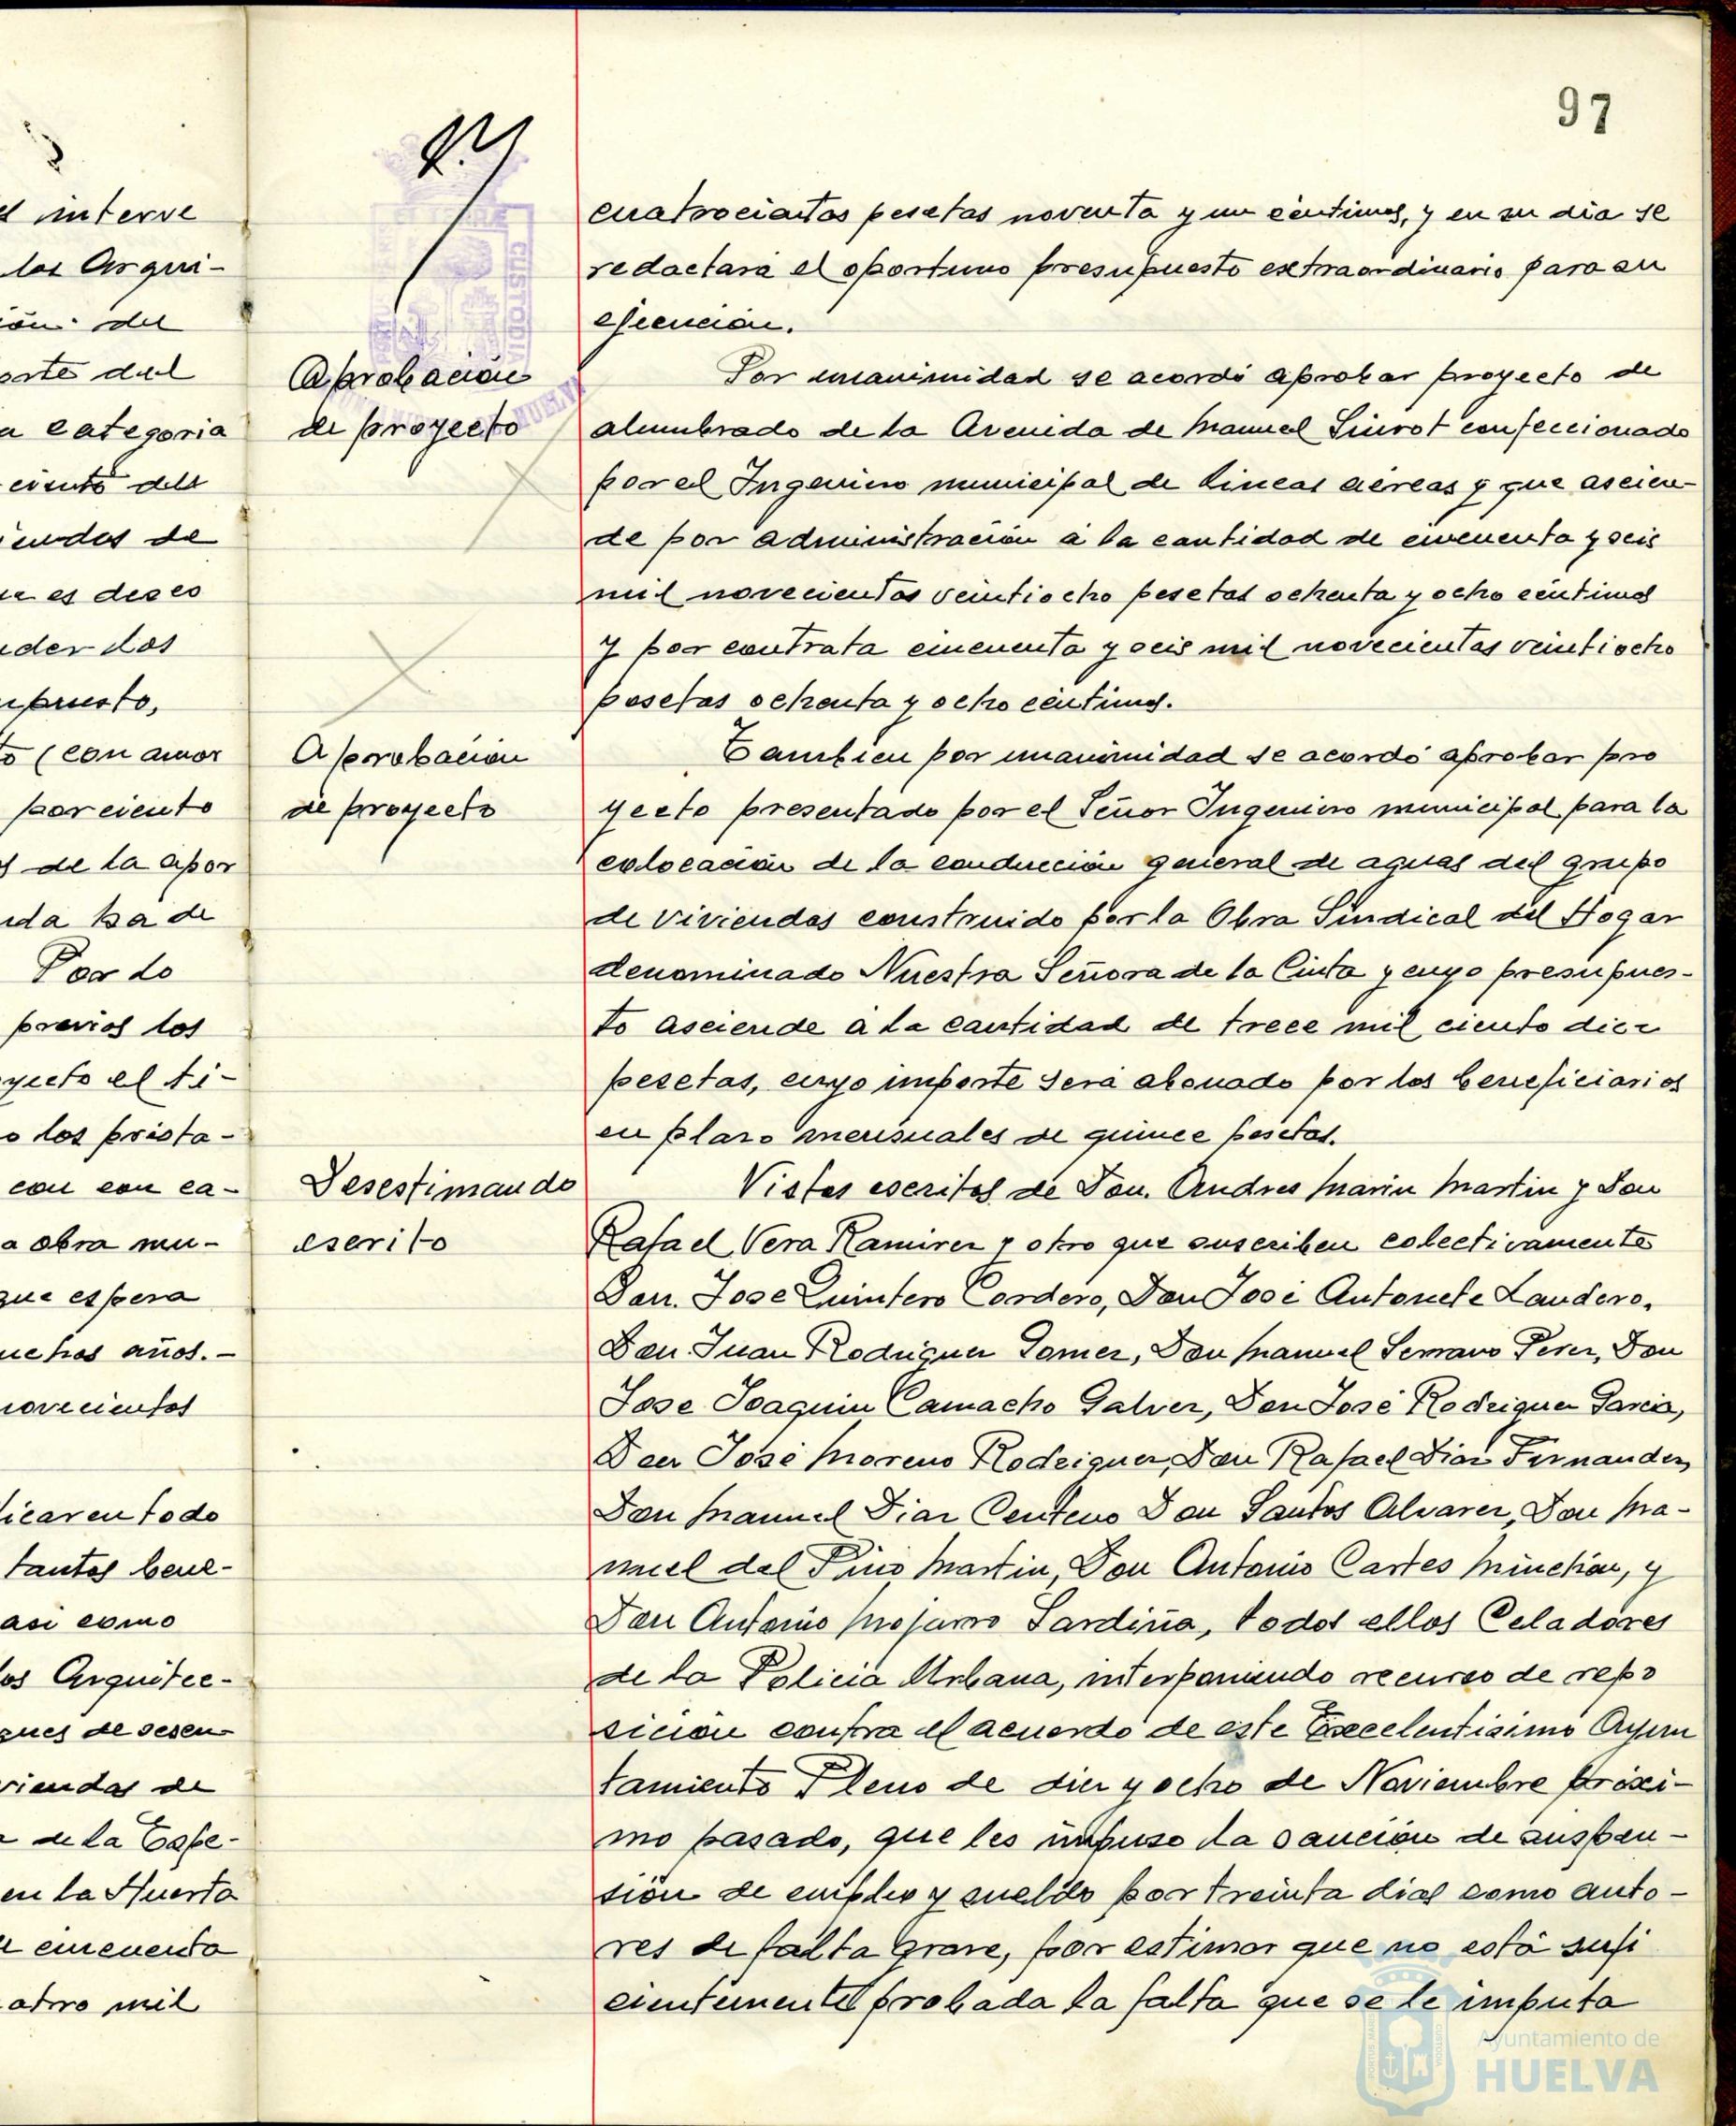 97
s interve
los Arqui-
ión del
orte del
a categoria
ciento del
iendas de
ue es deseo
nder los
upuesto,
to (con amor
por ciento
s de la apor
ida ha de
Por lo
previos los
yecto el ti-
o los prista-
con con ca-
a obra mu-
que espera
uchos años.-
novecientos
licar en todo
tantos bene-
asi como
los Arquitec-
ques de sesen
viendas de
a de la Espe-
en la Huerta
e cincuenta
atro mil
cuatrocientas pesetas noventa y un céntimos, y en su dia se
redactará el oportuno presupuesto extraordinario para su
ejecución.
Aprobación
de proyecto
Por unanimidad se acordó aprobar proyecto de
alumbrado de la Avenida de Manuel Siurot confeccionado
por el Ingeniero municipal de lineas aéreas y que ascien-
de por administración a la cantidad de cincuenta y seis
mil novecientas veintiocho pesetas ochenta y ocho céntimos
y por contrata cincuenta y seis mil novecientas veintiocho
pesetas ochenta y ocho céntimos.
Aprobación
de proyecto
Tambien por unanimidad se acordó aprobar pro
yecto presentado por el Señor Ingeniero municipal para la
colocación de la conducción general de aguas del grupo
de viviendas construido por la Obra Sindical del Hogar
denominado Nuestra Señora de la Cinta y cuyo presupues-
to asciende a la cantidad de trece mil ciento diez
pesetas, cuyo importe será abonado por los beneficiarios
en plazo mensuales de quince pesetas.
Desestimando
escrito
Vistos escritos de Don. Andres Marin Martin y Don
Rafael Vera Ramirez y otro que suscriben colectivamente
Don. Jose Quintero Cordero, Don José Antonete Landero,
Don. Juan Rodriguez Gomez, Don Manuel Serrano Perez, Don
Jose Joaquin Camacho Galvez, Don José Rodriguez Garcia,
Don José Moreno Rodriguez, Don Rafael Diaz Fernandez,
Don Manuel Diaz Centeno Don Santos Alvarez, Don Ma-
nuel del Pino Martin, Don Antonio Cartes Minchón, y
Don Antonio Mojarro Sardiña, todos ellos Celadores
de la Policia Urbana, interponiendo recurso de repo
sición contra el acuerdo de este Excelentisimo Ayun
tamiento Pleno de diez y ocho de Noviembre próxi-
mo pasado, que les impuso la sanción de suspen-
sión de empleo y sueldo por treinta dias como auto-
res de falta grave, por estimar que no está sufi
cientemente probada la falta que se le imputa
Ayuntamiento de
HUELVA